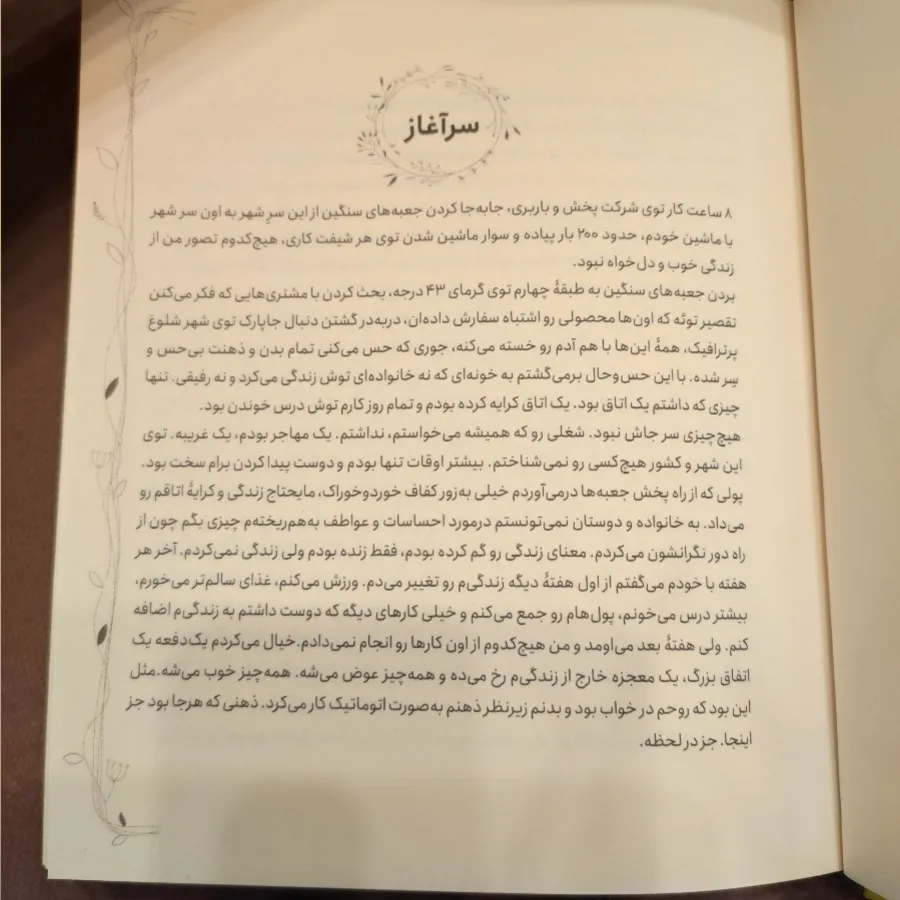 سرآغاز
۸ ساعت کار توی شرکت پخش و باربری، جابه‌جا کردن جعبه‌های سنگین از این سرِ شهر به اون سر شهر
با ماشین خودم، حدود ۲۰۰ بار پیاده و سوار ماشین شدن توی هر شیفت کاری، هیچ‌کدوم تصور من از
زندگی خوب و دل‌خواه نبود.
بردن جعبه‌های سنگین به طبقهٔ چهارم توی گرمای ۴۳ درجه، بحث کردن با مشتری‌هایی که فکر می‌کنن
تقصیر توئه که اون‌ها محصولی رو اشتباه سفارش داده‌ان، دربه‌در گشتن دنبال جاپارک توی شهر شلوغ
پرترافیک، همهٔ این‌ها با هم آدم رو خسته می‌کنه، جوری که حس می‌کنی تمام بدن و ذهنت بی‌حس و
سِر شده. با این حس‌وحال برمی‌گشتم به خونه‌ای که نه خانواده‌ای توش زندگی می‌کرد و نه رفیقی. تنها
چیزی که داشتم یک اتاق بود. یک اتاق کرایه کرده بودم و تمام روز کارم توش درس خوندن بود.
هیچ‌چیزی سر جاش نبود. شغلی رو که همیشه می‌خواستم، نداشتم. یک مهاجر بودم، یک غریبه. توی
این شهر و کشور هیچ‌کسی رو نمی‌شناختم. بیشتر اوقات تنها بودم و دوست پیدا کردن برام سخت بود.
پولی که از راه پخش جعبه‌ها درمی‌آوردم خیلی به‌زور کفاف خوردوخوراک، مایحتاج زندگی و کرایهٔ اتاقم رو
می‌داد. به خانواده و دوستان نمی‌تونستم درمورد احساسات و عواطف به‌هم‌ریخته‌م چیزی بگم چون از
راه دور نگرانشون می‌کردم. معنای زندگی رو گم کرده بودم، فقط زنده بودم ولی زندگی نمی‌کردم. آخر هر
هفته با خودم می‌گفتم از اول هفتهٔ دیگه زندگی‌م رو تغییر می‌دم. ورزش می‌کنم، غذای سالم‌تر می‌خورم،
بیشتر درس می‌خونم، پول‌هام رو جمع می‌کنم و خیلی کارهای دیگه که دوست داشتم به زندگی‌م اضافه
کنم. ولی هفتهٔ بعد می‌اومد و من هیچ‌کدوم از اون کارها رو انجام نمی‌دادم.خیال می‌کردم یک‌دفعه یک
اتفاق بزرگ، یک معجزه خارج از زندگی‌م رخ می‌ده و همه‌چیز عوض می‌شه. همه‌چیز خوب می‌شه.مثل
این بود که روحم در خواب بود و بدنم زیرنظر ذهنم به‌صورت اتوماتیک کار می‌کرد. ذهنی که هرجا بود جز
اینجا. جز در لحظه.